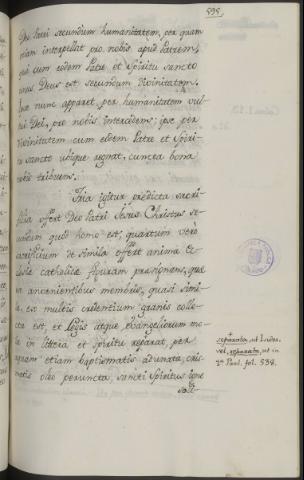 535.
Deo Patri secundum humanitatem, per quam
etiam interpellat pro nobis apud Patrem,
qui cum eodem Patre et Spiritu sancto
unus Deus est secundum Divinitatem.
nunc apparet, per humanitatem vul-
tui Dei, pro nobis intercedens; ipse per
Divinitatem cum eodem Patre et Spiri-
tu sancto ubique regnat, cuncta bona
nobis tribuens.
Tria igitur predicta sacri-
ficia offert Deo Patri Jesus Christus se-
cundum quid homo est, quartum vero
sacrificium de simila offert anima Ec-
clesie catholice figuram presignens, que
ex membris, quasi simi-
la, ex multis credentium granis colle-
cta est, et Legis atque Evangeliorum mo-
la in littera et Spiritu reparat, per
aquam etiam baptismatis adunata, cris-
matis oleo peruncta, sancti Spiritus igne
soli-
separatur, ut Isidor.
vel, separata, ut in
fol. 538.